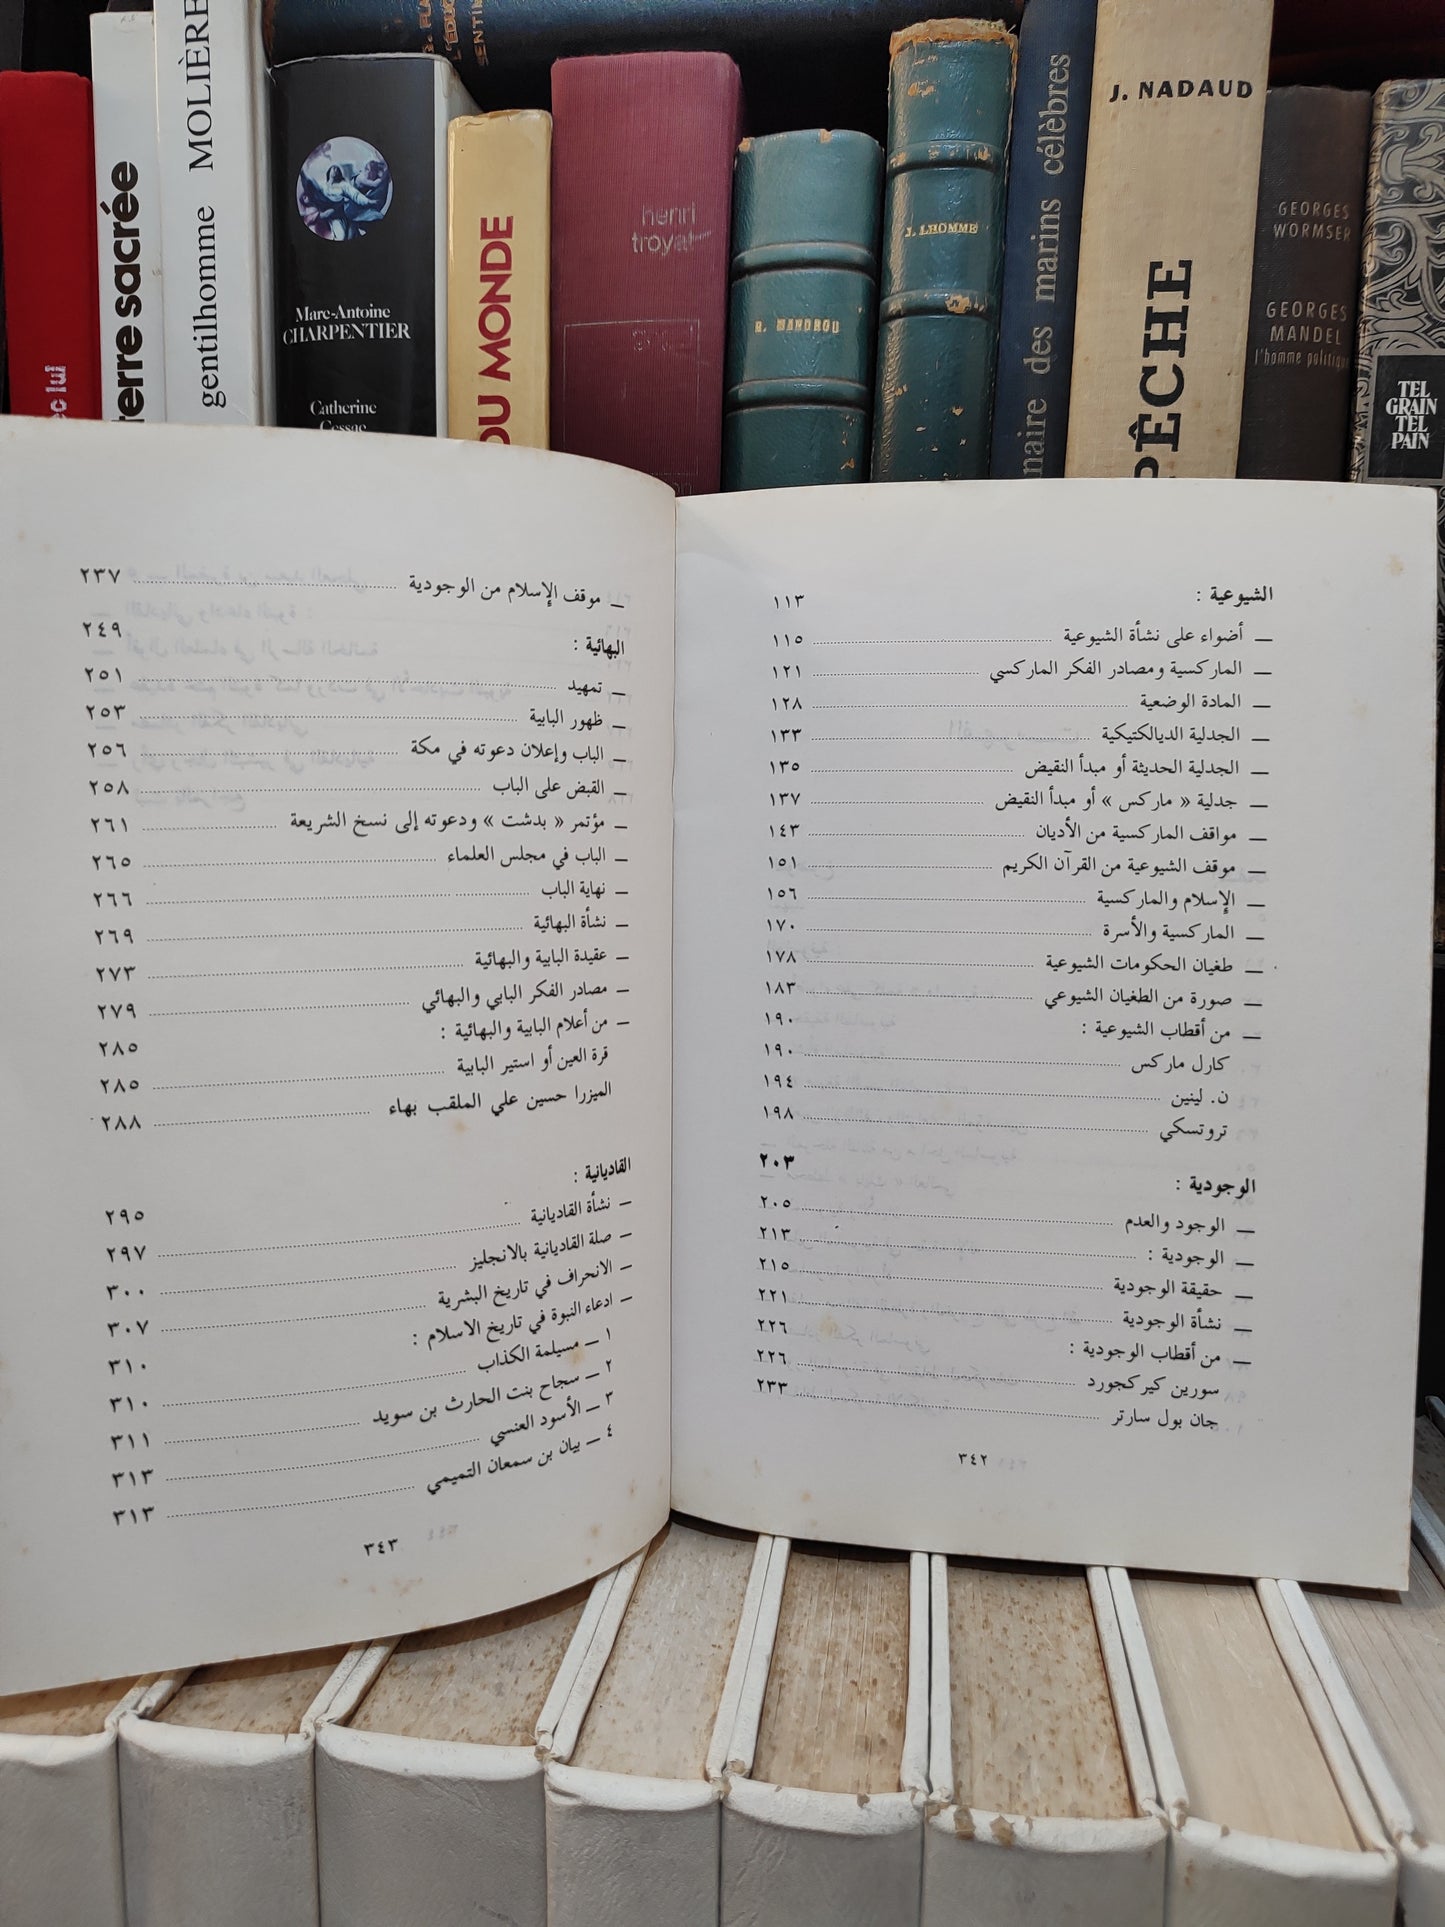 MOLIÈRE
gentilhomme
terre sacrée
Marc-Antoine
CHARPENTIER
Catherine
Cessac
DU MONDE
henri
troyat
R. MANDROU
J. LHOMME
naire des marins célèbres
J. NADAUD
PÊCHE
GEORGES
WORMSER
GEORGES
MANDEL
l'homme politique
TEL
GRAIN
TEL
PAIN
الشيوعية : ١١٣
— أضواء على نشأة الشيوعية ١١٥
— الماركسية ومصادر الفكر الماركسي ١٢١
— المادة الوضعية ١٢٨
— الجدلية الديالكتيكية ١٣٣
— الجدلية الحديثة أو مبدأ النقيض ١٣٥
— جدلية « ماركس » أو مبدأ النقيض ١٣٧
— مواقف الماركسية من الأديان ١٤٣
— موقف الشيوعية من القرآن الكريم ١٥١
— الإسلام والماركسية ١٥٦
— الماركسية والأسرة ١٧٠
— طغيان الحكومات الشيوعية ١٧٨
— صورة من الطغيان الشيوعي ١٨٣
— من أقطاب الشيوعية : ١٩٠
كارل ماركس ١٩٠
ن. لينين ١٩٤
تروتسكي ١٩٨
الوجودية : ٢٠٣
— الوجود والعدم ٢٠٥
— الوجودية : ٢١٣
— حقيقة الوجودية ٢١٥
— نشأة الوجودية ٢٢١
— من أقطاب الوجودية : ٢٢٦
سورين كيركجورد ٢٢٦
جان بول سارتر ٢٣٣
٣٤٢
— موقف الإسلام من الوجودية ٢٣٧
البهائية : ٢٤٩
— تمهيد ٢٥١
— ظهور البابية ٢٥٣
— الباب وإعلان دعوته في مكة ٢٥٦
— القبض على الباب ٢٥٨
— مؤتمر « بدشت » ودعوته إلى نسخ الشريعة ٢٦١
— الباب في مجلس العلماء ٢٦٥
— نهاية الباب ٢٦٦
— نشأة البهائية ٢٦٩
— عقيدة البابية والبهائية ٢٧٣
— مصادر الفكر البابي والبهائي ٢٧٩
— من أعلام البابية والبهائية : ٢٨٥
قرة العين أو استير البابية ٢٨٥
الميزرا حسين علي الملقب بهاء ٢٨٨
القاديانية : ٢٩٥
— نشأة القاديانية ٢٩٧
— صلة القاديانية بالانجليز ٣٠٠
— الانحراف في تاريخ البشرية ٣٠٧
— ادعاء النبوة في تاريخ الاسلام : ٣١٠
١ — مسيلمة الكذاب ٣١٠
٢ — سجاح بنت الحارث بن سويد ٣١١
٣ — الأسود العنسي ٣١٣
٤ — بيان بن سمعان التميمي ٣١٣
٣٤٣